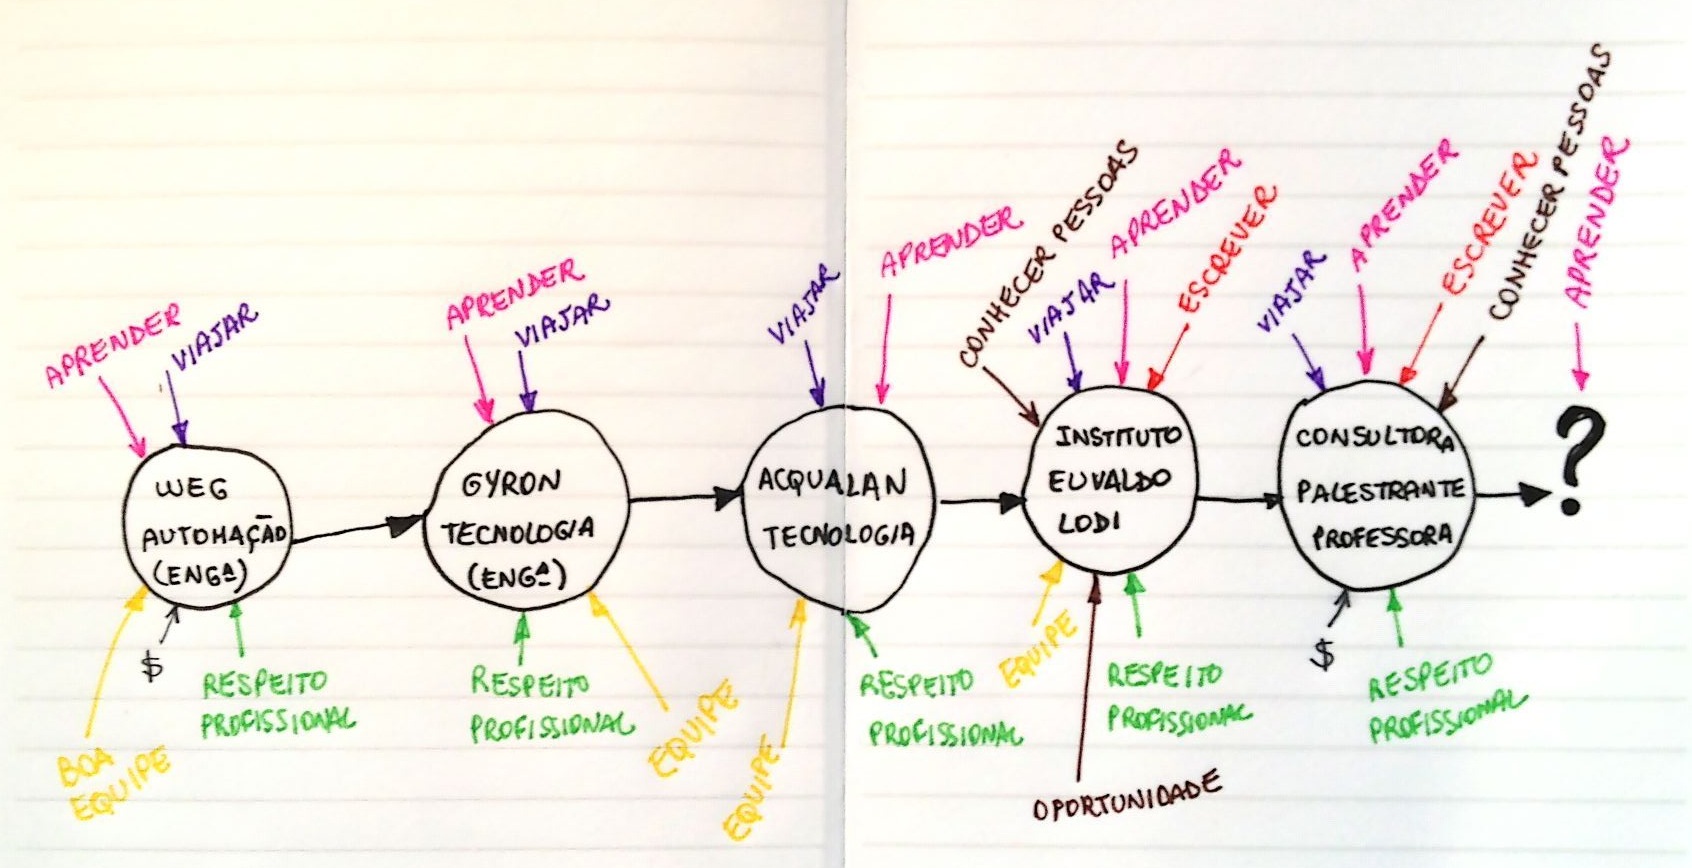 APRENDER
VIAJAR
WEG
AUTOMAÇÃO
(ENGª)
BOA
EQUIPE
$
RESPEITO
PROFISSIONAL
APRENDER
VIAJAR
GYRON
TECNOLOGIA
(ENGª)
RESPEITO
PROFISSIONAL
EQUIPE
VIAJAR
APRENDER
ACQUALAN
TECNOLOGIA
EQUIPE
RESPEITO
PROFISSIONAL
CONHECER PESSOAS
VIAJAR
APRENDER
ESCREVER
INSTITUTO
EUVALDO
LODI
EQUIPE
OPORTUNIDADE
RESPEITO
PROFISSIONAL
VIAJAR
APRENDER
ESCREVER
CONHECER PESSOAS
CONSULTORA
PALESTRANTE
PROFESSORA
$
RESPEITO
PROFISSIONAL
APRENDER
?